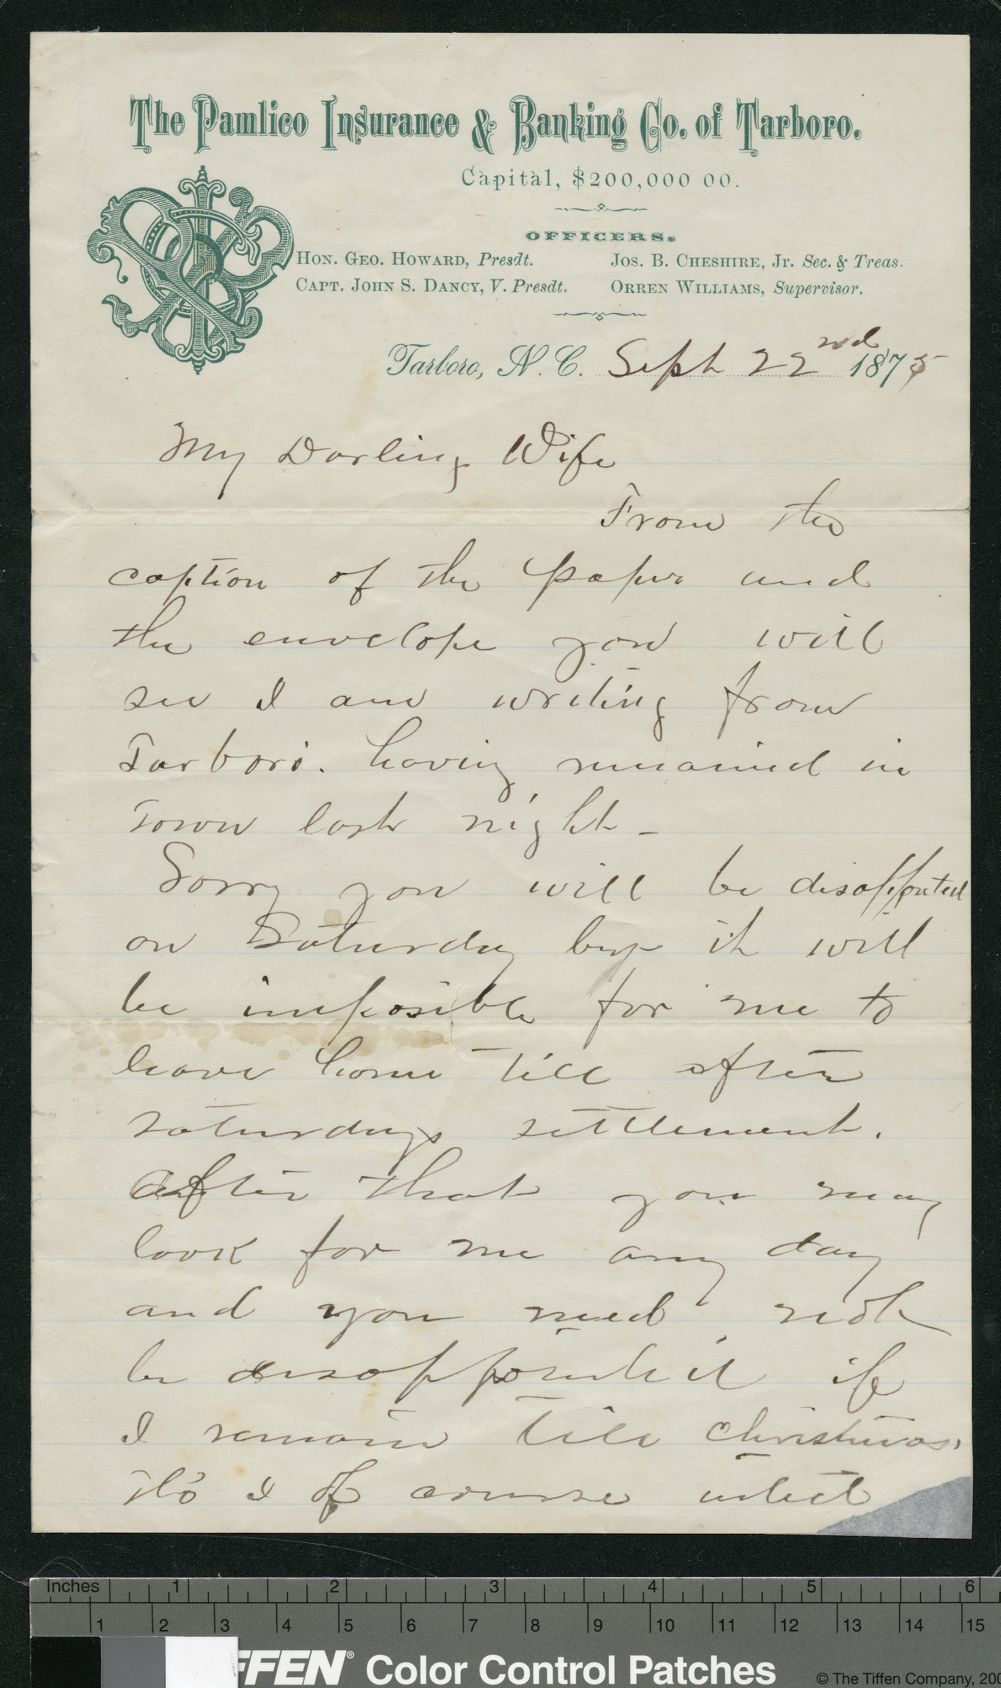 The Pamlico Insurance & Banking Co. of Tarboro.
Capital, $200,000 00.
OFFICERS.
HON. GEO. HOWARD, Presdt.
JOS. B. CHESHIRE, Jr. Sec. & Treas.
CAPT. JOHN S. DANCY, V. Presdt.
ORREN WILLIAMS, Supervisor.
Tarboro, N. C. Sept 22nd 1875
My Darling Wife
From the
caption of the paper and
the envelope you will
see I am writing from
Tarboro. having remained in
Town last night -
Sorry you will be disappointed
on Saturday but it will
be imposible for me to
leave home till after
saturdays settlement.
After that you may
look for me any day
and you need not
be disappointed if
I remain till christmas.
tho I of course
Inches 1 2 3 4 5 6
1 2 3 4 5 6 7 8 9 10 11 12 13 14 15
FFEN® Color Control Patches
© The Tiffen Company, 200